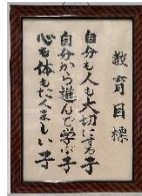 教育目標
自分も人も大切にする子
自分から進んで学ぶ子
心も体もたくましい子